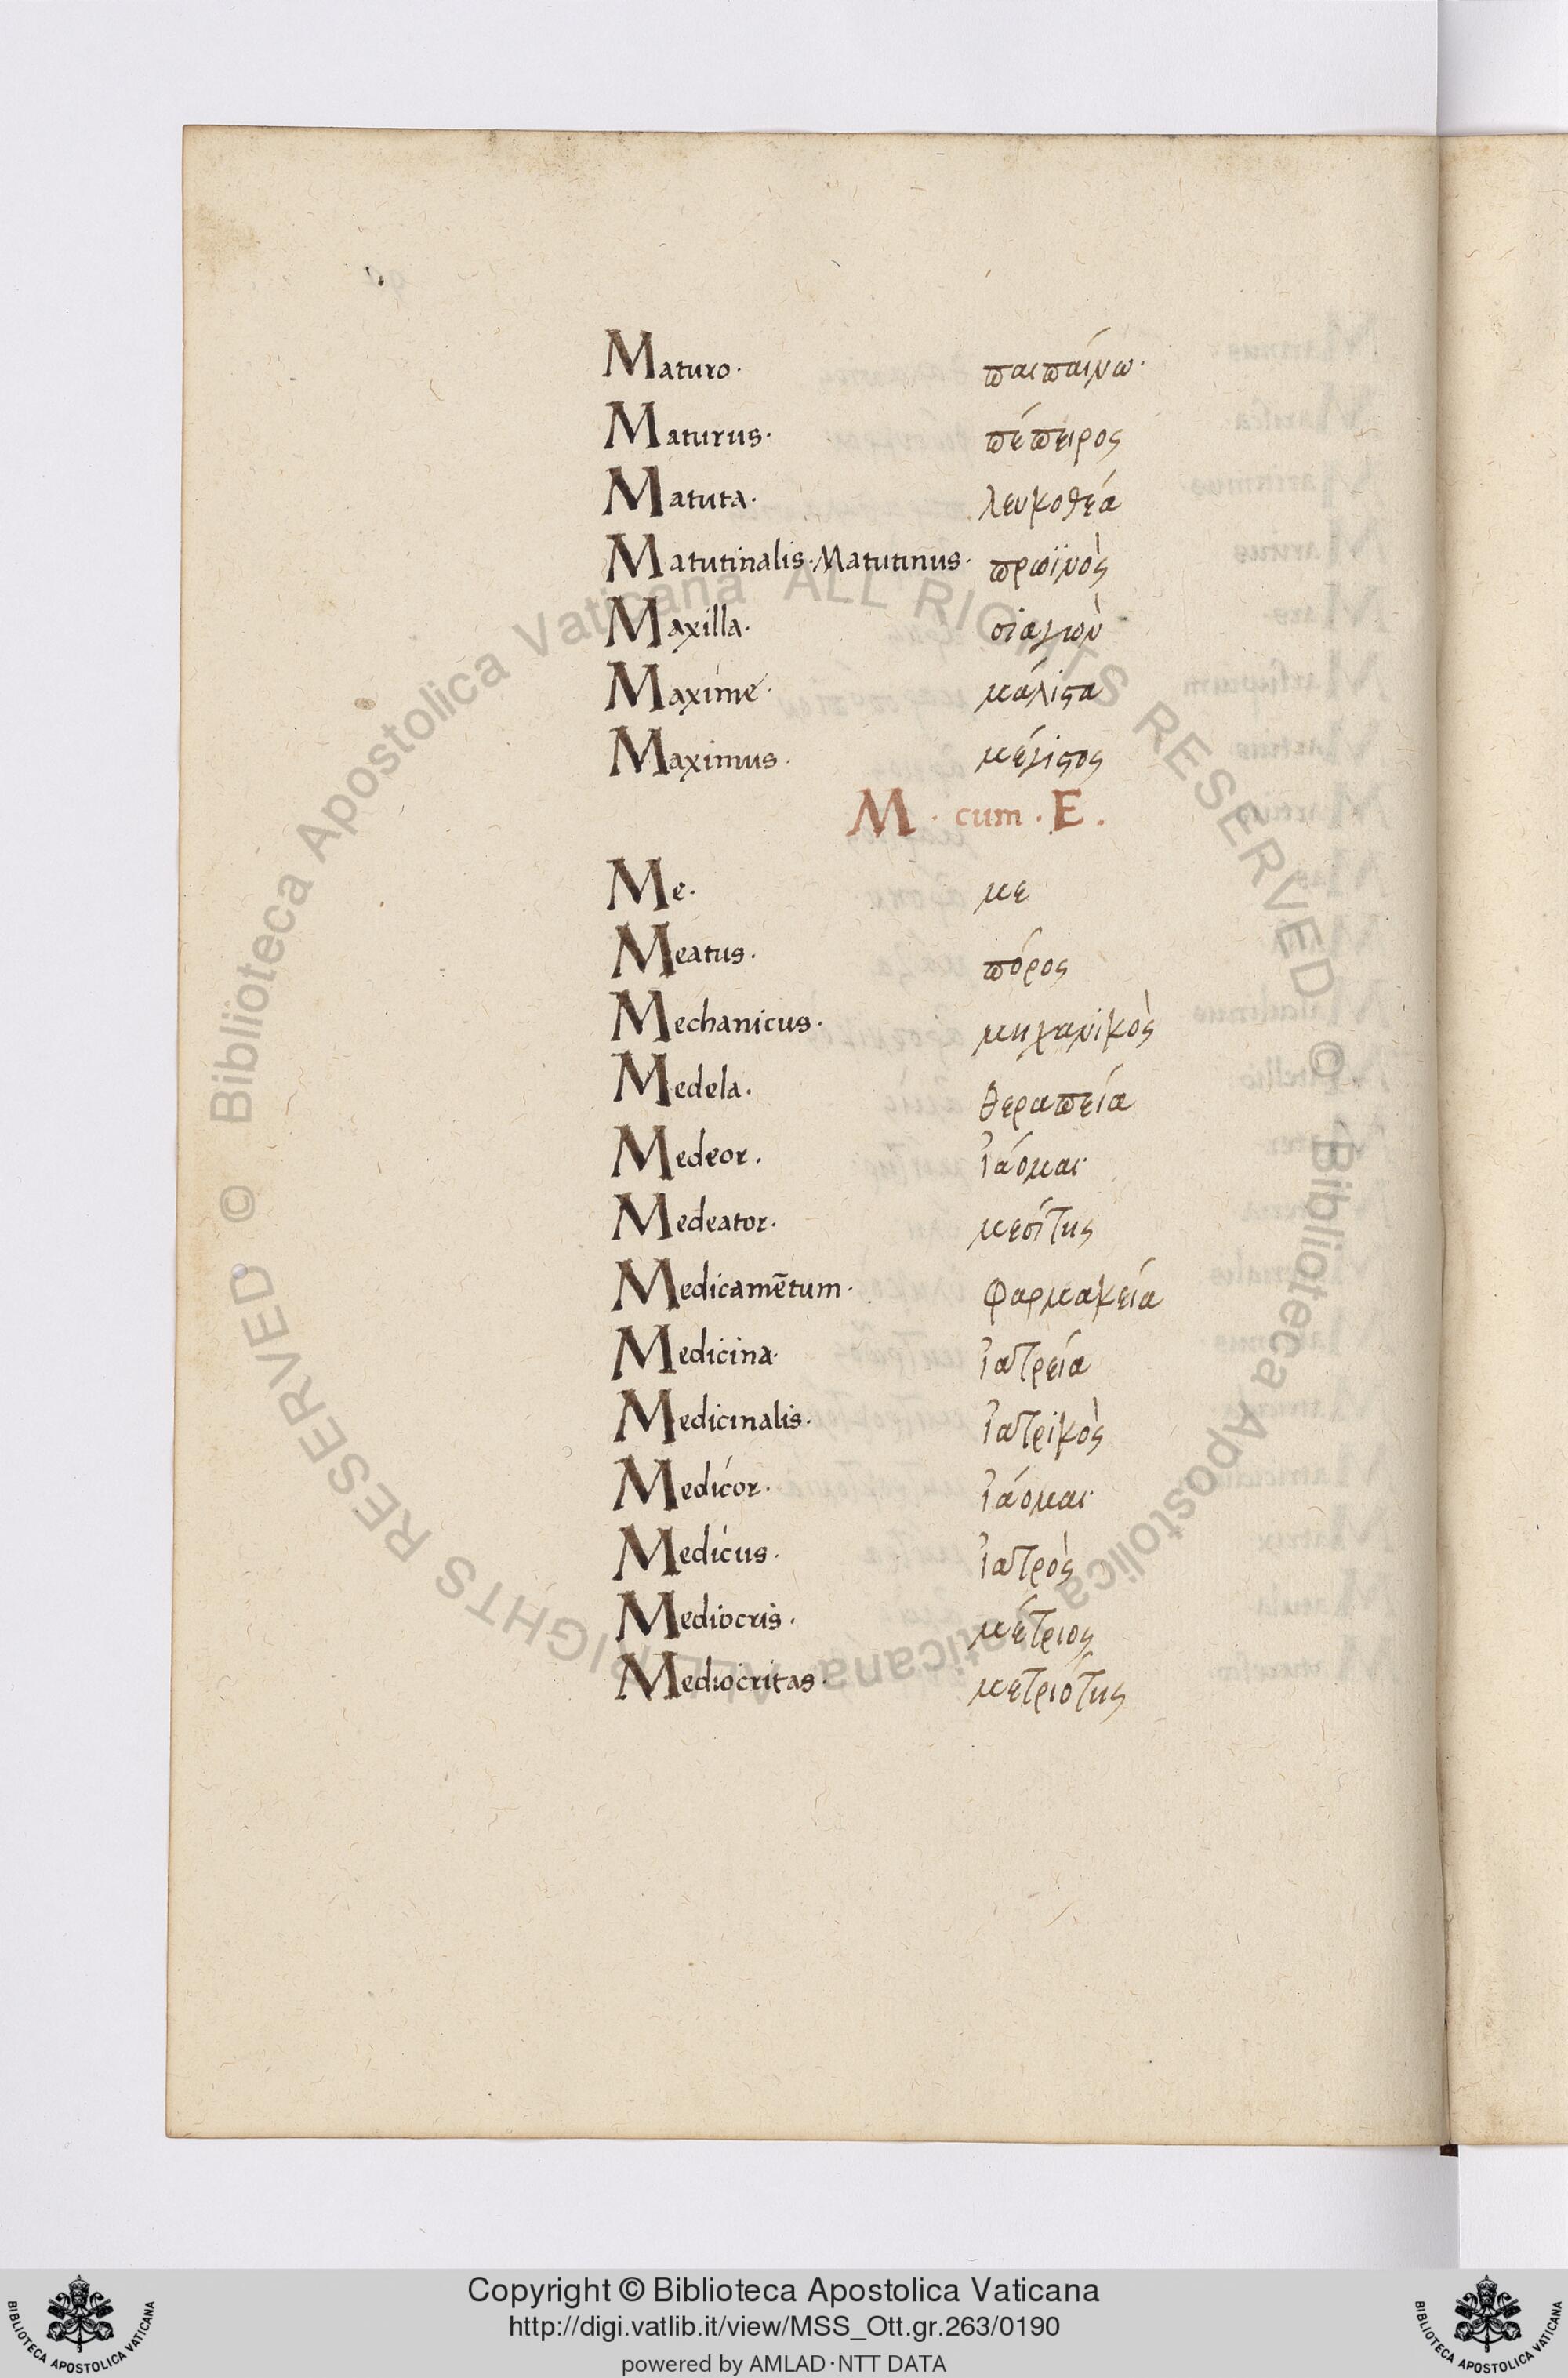 Maturo· παιπαίνω·
Maturus· πέπειρος
Matuta· λευκοθέα
Matutinalis·Matutinus· πρωϊνὸς
Maxilla· σιαγὼν
Maxime· μάλιςα
Maximus· μέγιςος
M · cum · E .
Me· με
Meatus· πόρος
Mechanicus· μηχανικὸς
Medela· θεραπεία
Medeor. ἰάομαι
Medeator· μεσίτης
Medicamētum· φαρμακεία
Medicina· ἰατρεία
Medicinalis· ἰατρικὸς
Medicor· ἰάομαι
Medicus· ἰατρὸς
Mediocris· μέτριος
Mediocritas· μετριότης
© Biblioteca Apostolica Vaticana ALL RIGHTS RESERVED
© Biblioteca Apostolica Vaticana ALL RIGHTS RESERVED
Copyright © Biblioteca Apostolica Vaticana
http://digi.vatlib.it/view/MSS_Ott.gr.263/0190
powered by AMLAD·NTT DATA
BIBLIOTECA APOSTOLICA VATICANA
BIBLIOTECA APOSTOLICA VATICANA